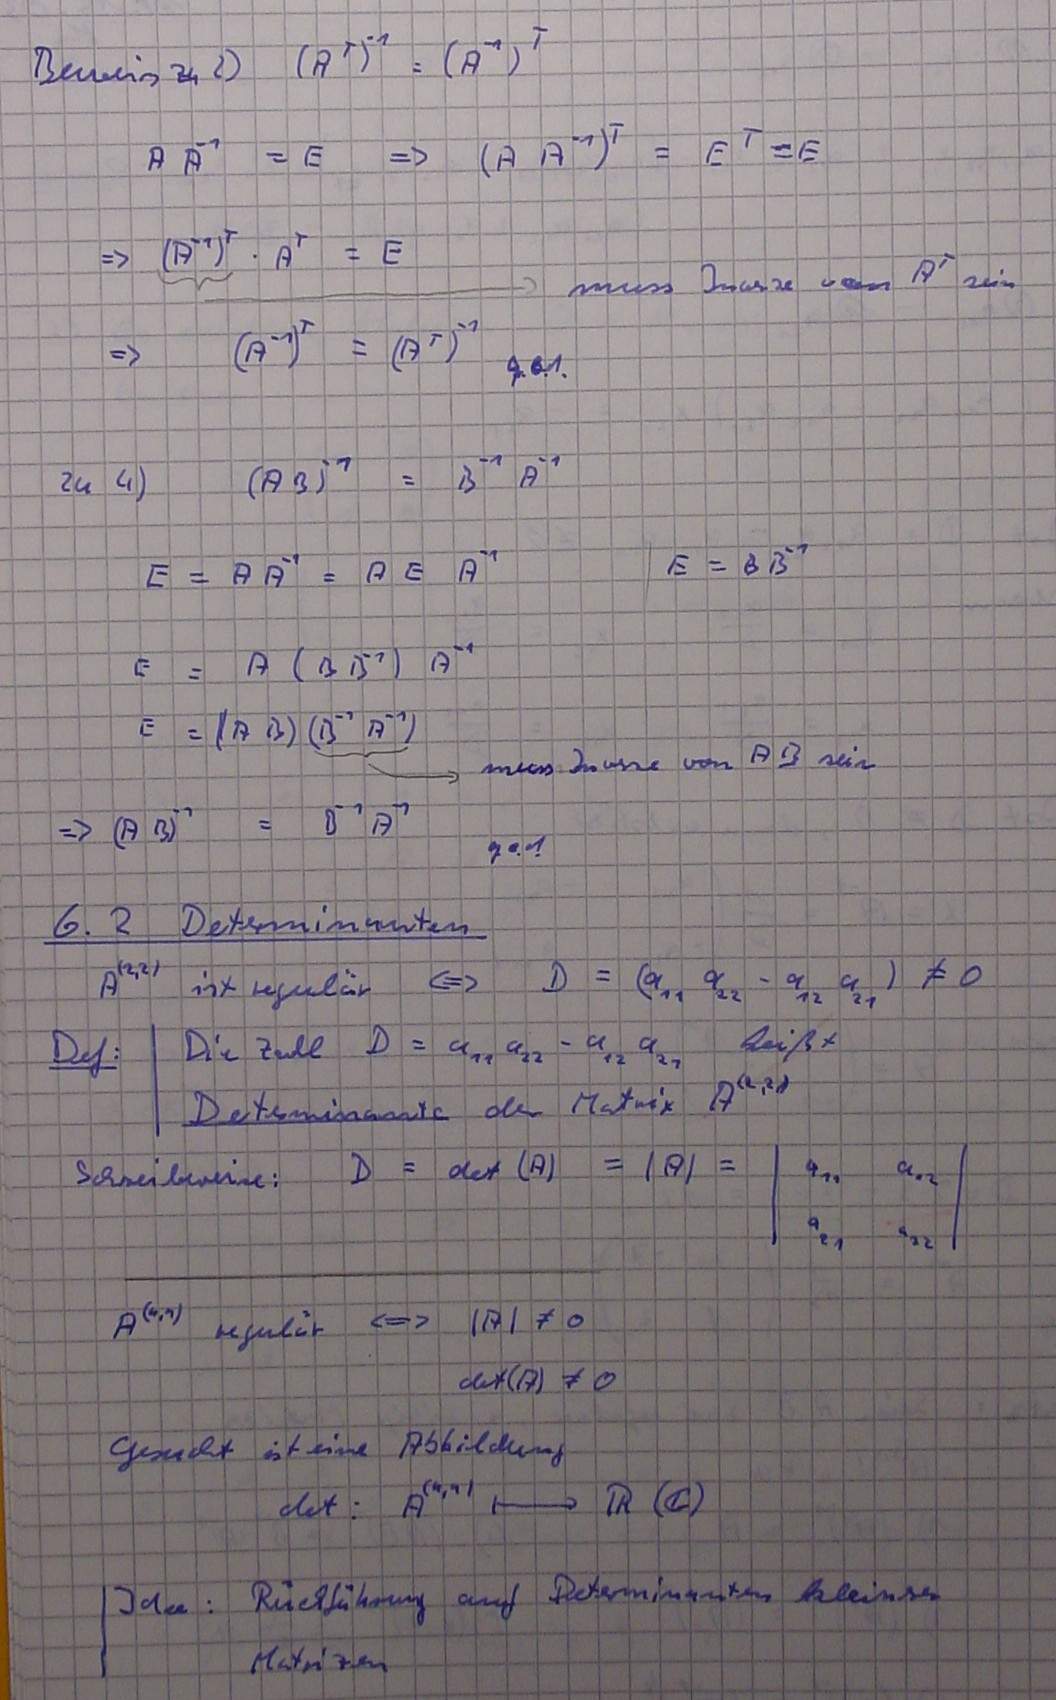 Beweis zu 2) (A^T)^-1 = (A^-1)^T
A A^-1 = E => (A A^-1)^T = E^T = E
=> (A^-1)^T · A^T = E
muss Inverse von A^T sein
=> (A^-1)^T = (A^T)^-1 q.e.d.
zu 4) (A B)^-1 = B^-1 A^-1
E = A A^-1 = A E A^-1 E = B B^-1
E = A (B B^-1) A^-1
E = (A B) (B^-1 A^-1)
muss Inverse von A B sein
=> (A B)^-1 = B^-1 A^-1
q.e.d.
6.2 Determinanten
A^(2,2) ist regulär <=> D = (a₁₁ a₂₂ - a₁₂ a₂₁) ≠ 0
Def: Die Zahl D = a₁₁ a₂₂ - a₁₂ a₂₁ heißt
Determinante der Matrix A^(2,2)
Schreibweise: D = det (A) = |A| = | a₁₁ a₁₂
a₂₁ a₂₂ |
A^(n,n) regulär <=> |A| ≠ 0
det(A) ≠ 0
Gesucht ist eine Abbildung
det: A^(n,n) ⟼ ℝ (ℂ)
Idee: Rückführung auf Determinanten kleinerer
Matrizen